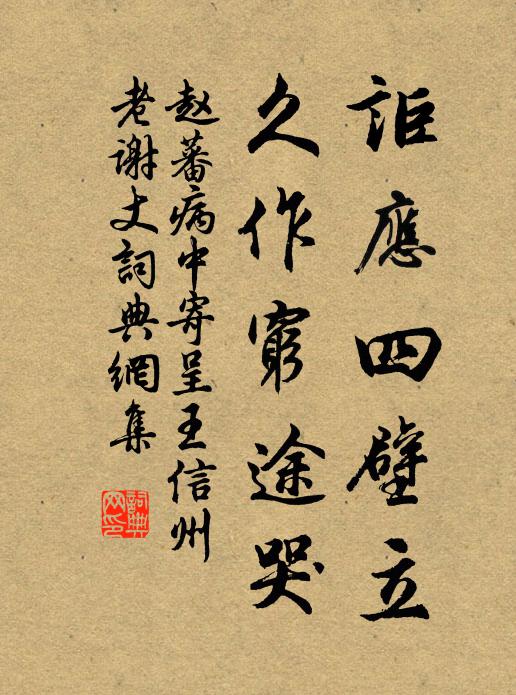 詎應四壁立
久作窮途哭
赵蕃病中寄呈王信州
老謝丈詞典網集
詞典网印